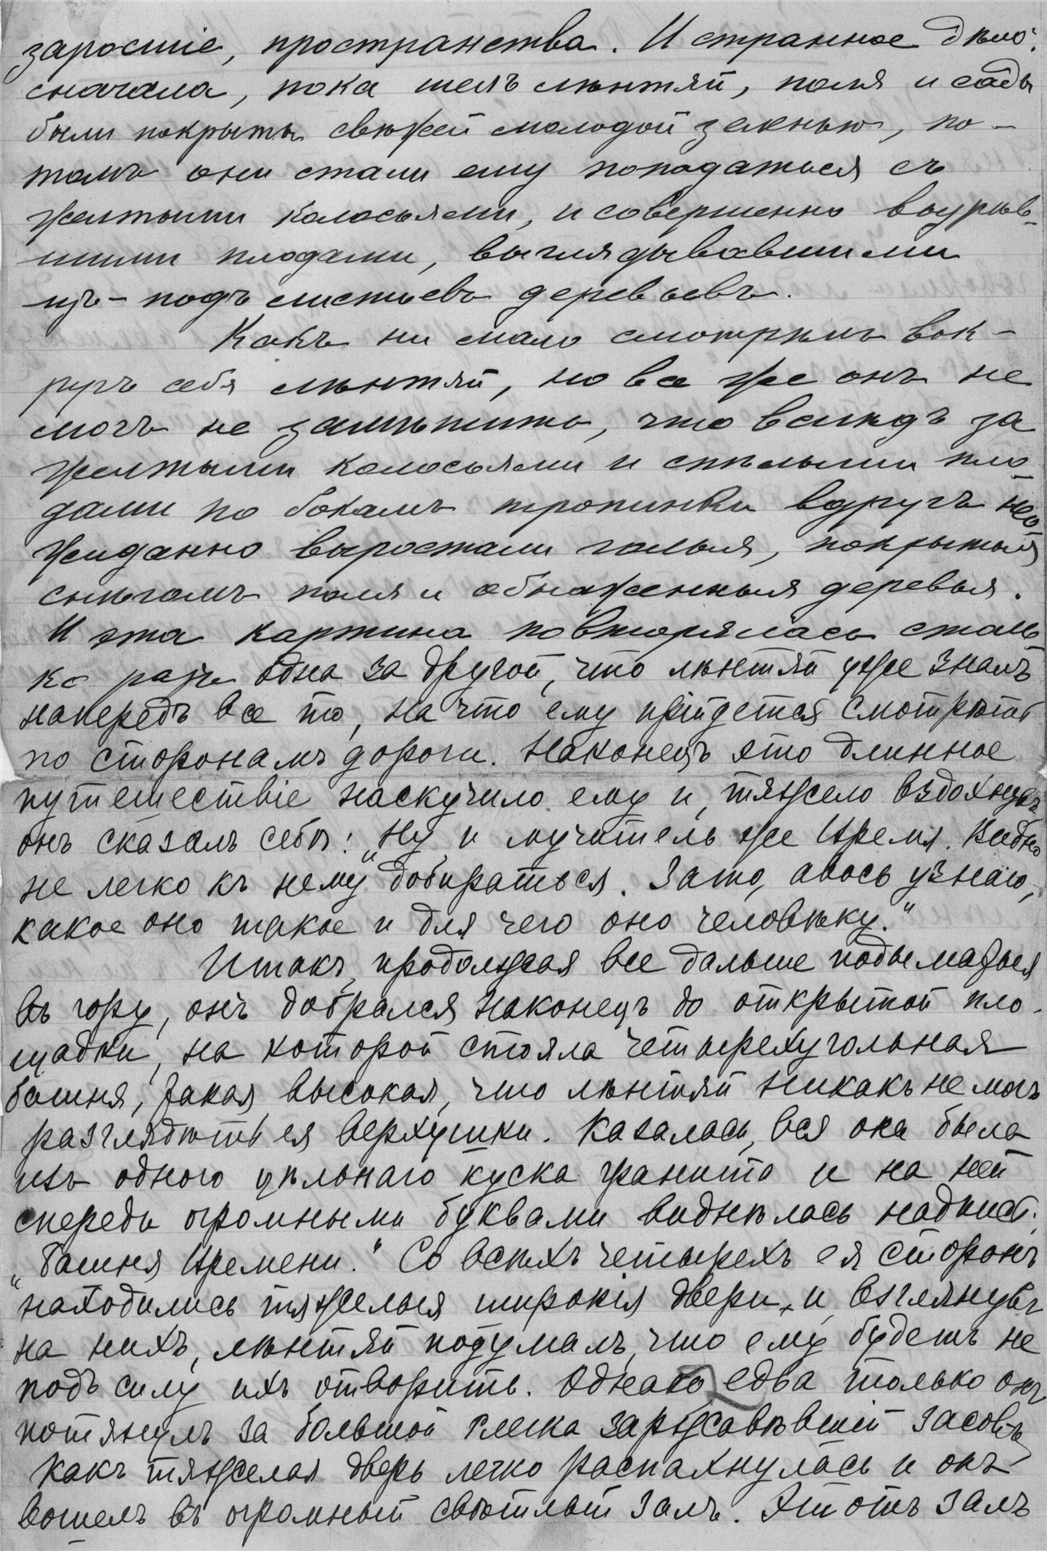 заросшіе, пространства. И странное дѣло:
сначала, пока шелъ лѣнтяй, поля и сады
были покрыты свѣжей молодой зеленью, по-
томъ они стали ему попадаться съ
желтыми колосьями, и совершенно созрѣв-
шими плодами, выглядывавшими
изъ-подъ листьевъ деревьевъ.
Какъ ни мало смотрѣлъ вок-
ругъ себя лѣнтяй, но все же онъ не
могъ не замѣтить, что вслѣдъ за
желтыми колосьями и спѣлыми пло-
дами по бокамъ тропинки вдругъ нео-
жиданно выростали голыя, покрытыя
снѣгомъ поля и обнаженныя деревья.
И эта картина повторялась столь-
ко разъ одна за другой, что лѣнтяй уже зналъ
напередъ все то, на что ему прійдется смотрѣть
по сторонамъ дороги. Наконецъ это длинное
путешествіе наскучило ему и, тяжело вздохнувъ
онъ сказалъ себѣ: „Ну и мучитель же Время. Видно
не легко къ нему добираться. Зато, авось узнаю,
какое оно такое и для чего оно человѣку.“
Итакъ, продолжая все дальше подыматься
въ гору, онъ добрался наконецъ до открытой пло-
щадки, на которой стояла четырехугольная
башня, такая высокая, что лѣнтяй никакъ не могъ
разглядѣть ея верхушки. Казалась, вся она была
изъ одного цѣльнаго куска гранита и на ней
спереди огромными буквами виднѣлась надпись:
„Башня Времени.“ Со всѣхъ четырехъ ея сторонъ
находились тяжелыя широкія двери, и, взглянувъ
на нихъ, лѣнтяй подумалъ, что ему будетъ не
подъ силу ихъ отворить. Однако едва только онъ
потянулъ за большой слегка заржавѣвшій засовъ,
какъ тяжелая дверь легко распахнулась и онъ
вошелъ въ огромный свѣтлый залъ. Этотъ залъ